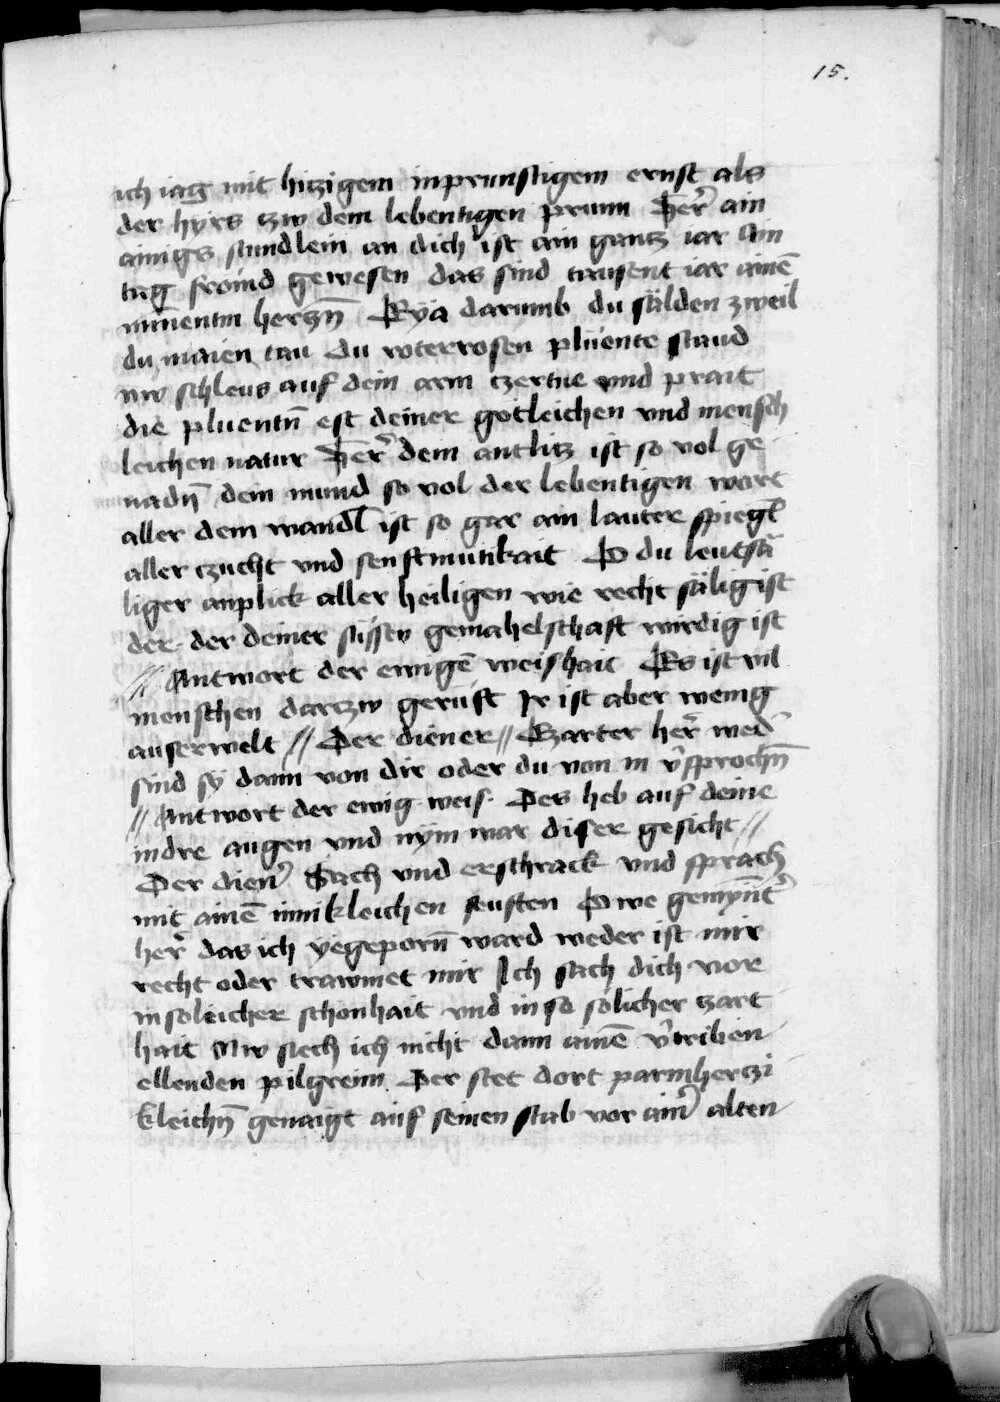 15.
ich iag mit hitzigem inprunstigem ernst als
der hyrs tzw dem lebentigen prunn Her̄ ain
ainigs stundlein an dich ist ain gantz iar Ain
tag fromd gewesen das sind tausent iar ainē
herczn̄ Eya darumb du sälden zweil
du maien tau du roterrosen plüente staud
nw schleus auf dein arm tzertue vnd prait
die pluentn̄ est deiner gotleichen vnd mensch
leichen natur Her̄ dein antlitz ist so vol ge
nadn̄ dein mund so vol der lebentigen wort
aller dein wandl ist so gar ain lauter spiegl
aller tzucht vnd senftmutikait O du leutsä
liger anplick aller heiligen wie recht sälig ist
der der deiner süssen gemahelschaft wirdig ist
// Antwort der ewigē weishait Es ist vil
menschen dartzw geruft Ir ist aber wenig
auserwelt // Der diener // Czarter her̄ wed̄
sind sy dann von dir oder du von in v̄sprochn̄
// Antwort der ewig weis. Des heb auf deine
indre augen vnd nym war diser gesicht //
Der dien̄ Sach vnd erschrack vnd sprach
mit ainē innikleichen seuften Owe gemynt̄
her̄ das ich yegeporn̄ ward weder ist mir
recht oder trawmet mir Ich sach dich vor
in soleicher schonhait vnd in so solicher zart
hait Nw siech ich nicht dann ainē v̄triben
ellenden pilgreim Der stet dort parmhertzi
kleichn̄ genaigt auf seinen stab vor ain̄ alten